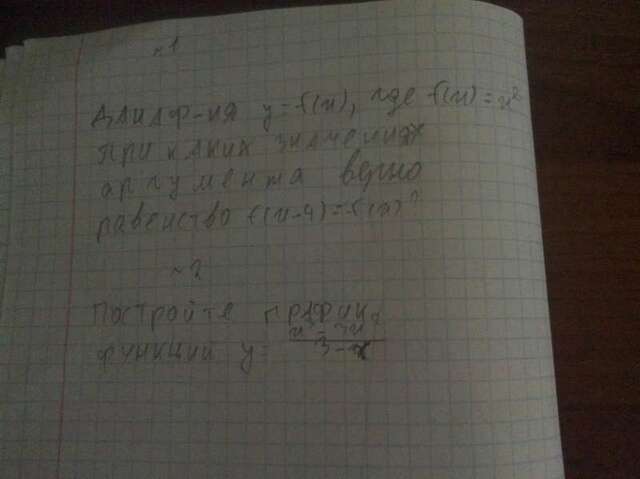 №1
Дана ф-ия y=f(x), где f(x)=x²
При каких значениях
аргумента верно
равенство f(x-4)=f(x)?
№2
Постройте график
функций y=
3-x